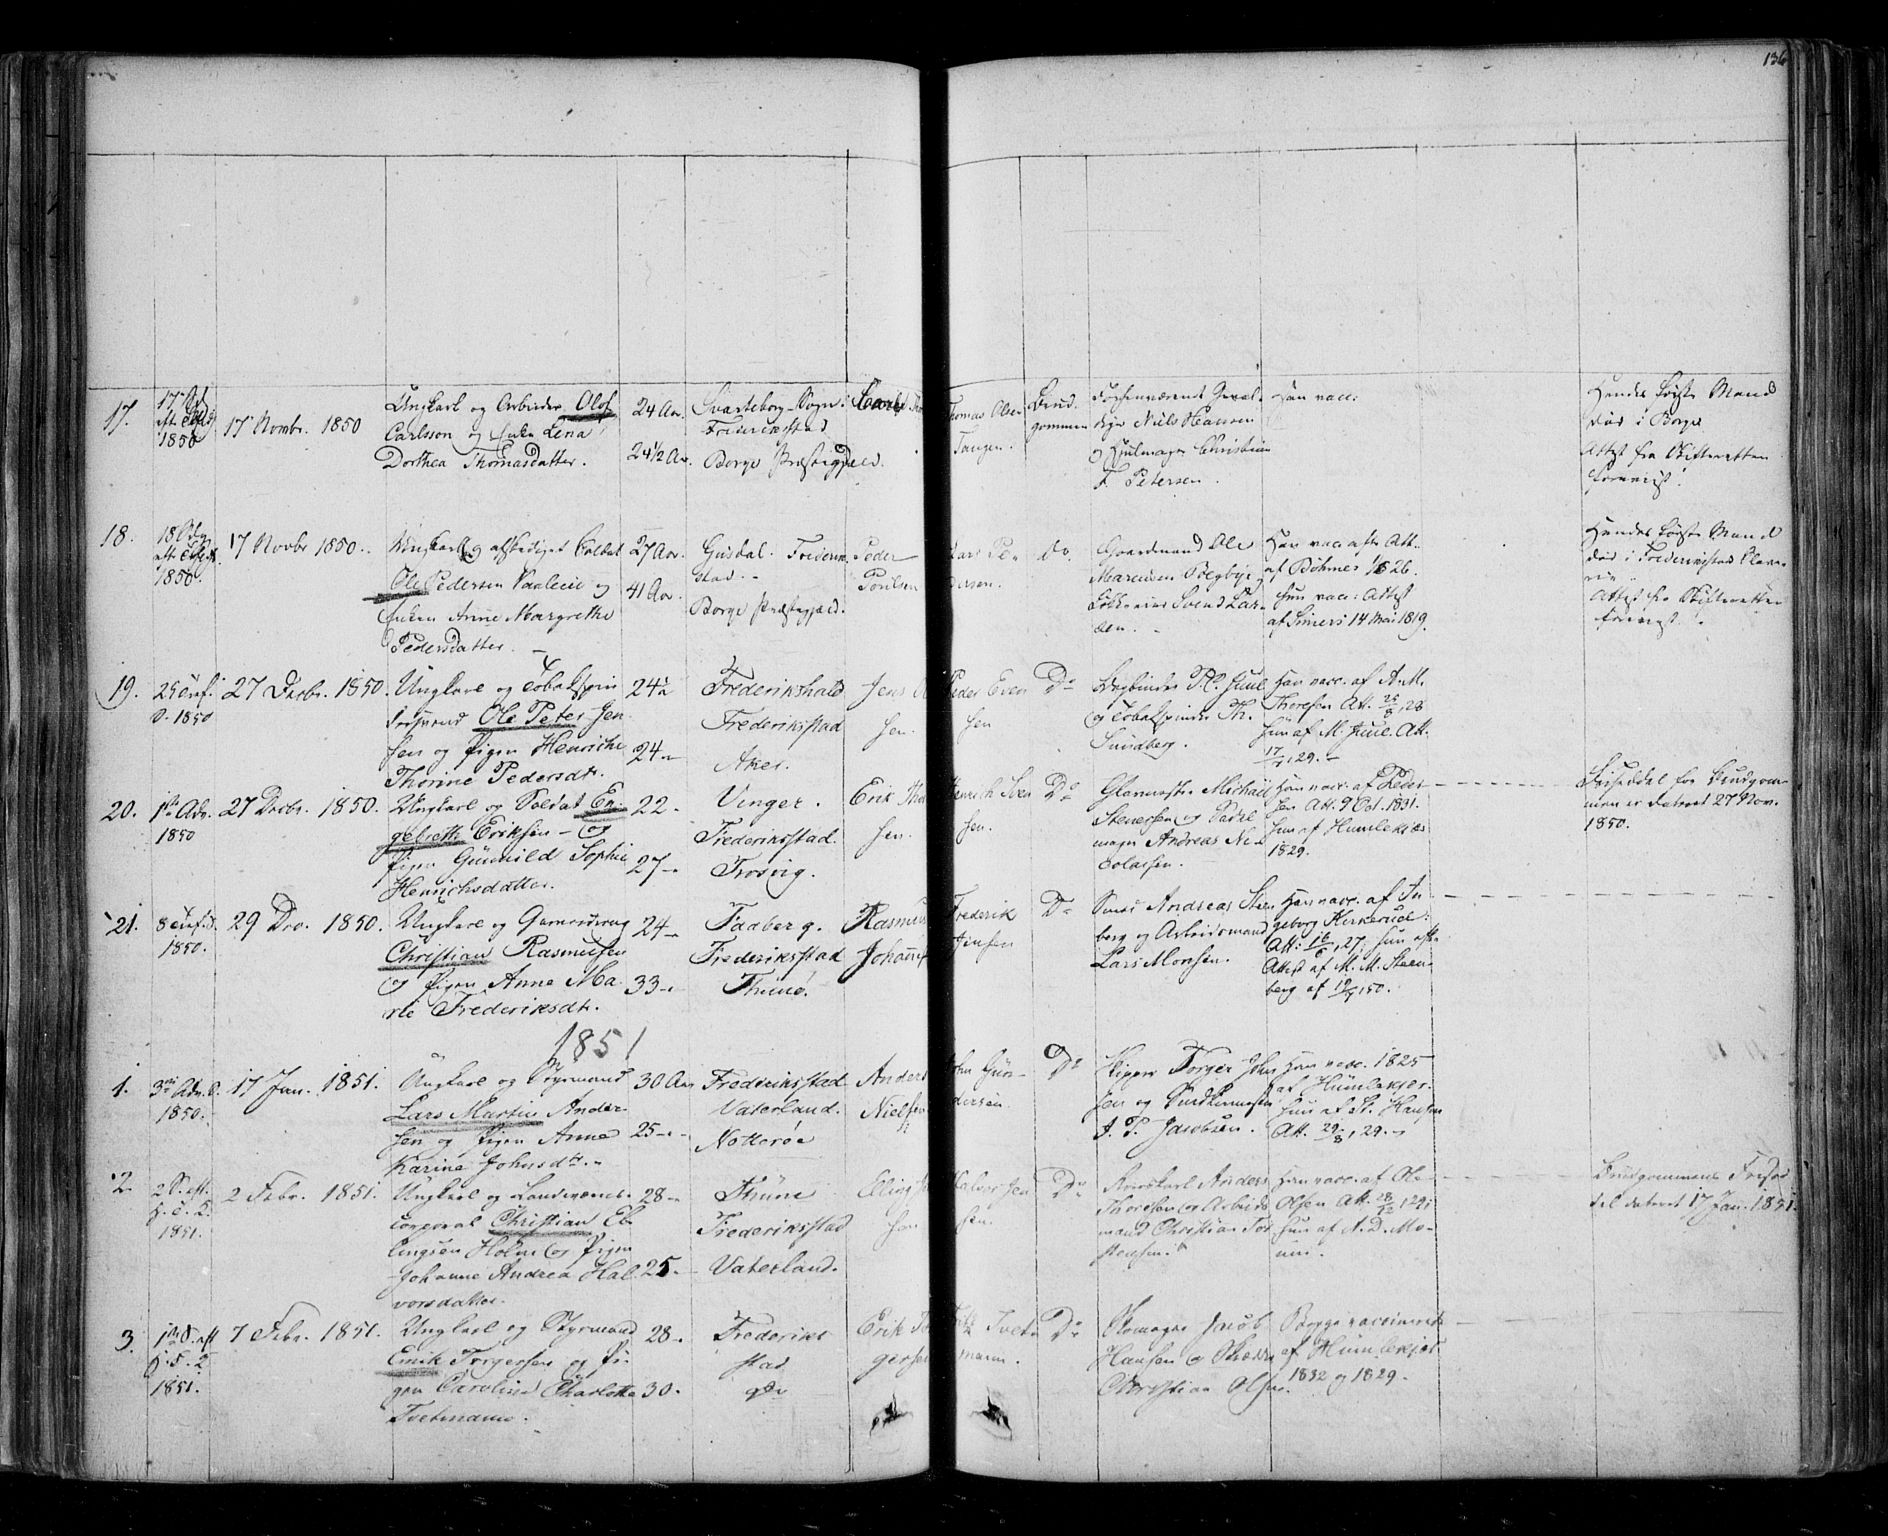 136
17.
1850
17 Novbr. 1850
Ungkarl og Arbeider Olof
Carlsson og Enke Lena
Dorthea Thomasdatter.
24 Aar.
24 1/2 Aar.
Svarteborg Sogn
Frederikstad
Borge Præstegjeld.
Thomas Olsen
Tangen.
Brud-
gommen
Niels Hansen
og Hjulmager Christian
F. Petersen.
Han vacc:
Hendes første Mand
død i Borge
Attest fra Skifteretten
forevist.
18.
1850.
17 Novbr 1850.
Ungkarl og afskediget Soldat
Ole Pedersen Vaaleie og
Enken Anne Margrethe
Pedersdatter.
27 Aar.
41 Aar.
Frederik-
stad.
Borge Præstegjeld.
Peder
Poulsen
Lars Pe-
dersen.
do
Gaardmand Ole
Svend Lar-
sen.
Han vacc. efter Att.
af Böhmer 1826.
hun vacc: Attest
af Simers 14 Mai 1819.
Hendes første Mand
død i Frederikstad
Attest fra Skifteretten
forevist.
19.
1850
27 Decbr. 1850.
Ungkarl og Tobakspin
Ole Peter Jen-
sen og Pigen Henriche
Thorine Pedersdtr.
24
24
Frederikshald
Frederiksstad
Aker.
Jens
sen.
Peder Even
sen
Do
Bogbinder P. C. Juul
og Tobakspinder Th.
Sundberg.
Han vacc. af A. M.
Thoresen Att. 25/8, 28
hun af M. Juul. Att.
17/, 29.
20.
1ste Adv.
1850
27 Decbr. 1850.
Ungkarl og Soldat En-
gebreth Eriksen og
Pigen Gunnild Sophie
Henrichsdatter.
22
27
Vinger.
Frederiksstad.
Trosvig.
Erik
sen.
Henrich Sven
sen.
Do
Glarmester Michael
Stenersen og Sadel
mager Andreas Ni-
colaisen.
Han vacc. af Peder-
sen Att. 9 Oct. 1831.
hun af Humlekjær
1829.
for Brudgom-
men er dateret 27 Nov.
1850.
21.
1850.
29 Dec. 1850.
Ungkarl og
Christian Rasmussen
og Pigen Anne Ma
rie Frederiksdtr.
24
33
Faaberg.
Frederiksstad
Thunø.
Rasmus
Johannes
Frederik
Jensen
Do
Smed Andreas Steen
berg og Arbeidsmand
Lars Monsen.
Han vacc. af In
geborg Kirkerud
Att: 16/, 27, hun efter
Attest af M. M. Steen-
berg af 19/, 50.
1851
1.
1850.
17 Jan. 1851.
Ungkarl og Styrmand
Lars Martin Ander-
sen og Pigen Anne
Karine Johnsdtr.
30 Aar
25
Frederiksstad
Vaterland.
Notterøe
Anders
Nielsen
John Gun-
dersen
Do
Skipper Torger John
sen og
J. P. Jacobsen.
Han vacc. 1825
af Humlekjær.
hun af St. Hansen
Att. 29/8, 29.
2.
1851.
2 Febr. 1851.
Ungkarl og Landværns-
corporal Christian El-
lingsen Holm og Pigen
Johanne Andrea Hal
vorsdatter.
28
25
Thune
Frederiksstad
Vaterland.
Elling
sen
Halvor Jen
sen.
Do
Anders
Thoresen og Arbeids
mand Christian Tor
stensen.
Han vacc. af Ole
Olsen Att. 28/12, 29;
hun af N. D. Mo-
um.
Brudgommens
dateret 17 Jan. 1851.
3.
1851.
7 Febr. 1851.
Ungkarl og Styrmand
Emik Torgersen og Pi-
gen Caroline Charlotte
Tvetmann.
28
30.
Frederiks
stad
Erik
gersen
Tvet-
mann.
Do
Skomager Jacob
Hansen og Skræder
Christian Olsen.
Begge vaccinerede
af Humlekjær
1832 og 1829.